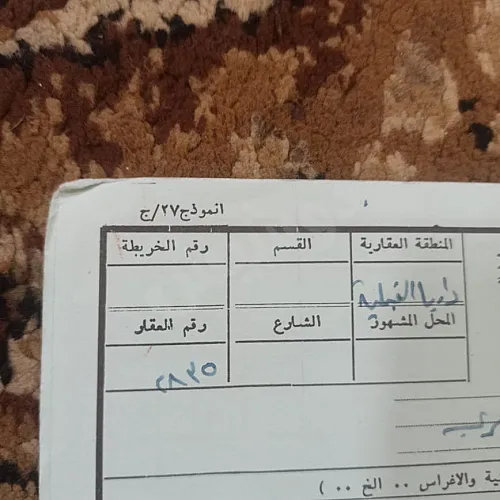 انموذج ٢٧/ج
المنطقة العقارية القسم رقم الخريطة
داريا القبلية
المحل المشهور الشارع رقم العقار
٢٨٣٥
ية والاغراس .. الخ .. )